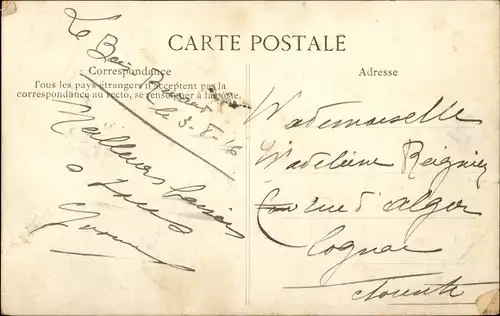 CARTE POSTALE
Correspondance
Tous les pays étrangers n'acceptent pas la
correspondance au recto, se renseigner à la poste.
Le
le 3-8-16
Meilleurs baisers
à tous
Yvonne
Adresse
Mademoiselle
Madeleine Reignier
rue d'Alger
Cognac
Charente